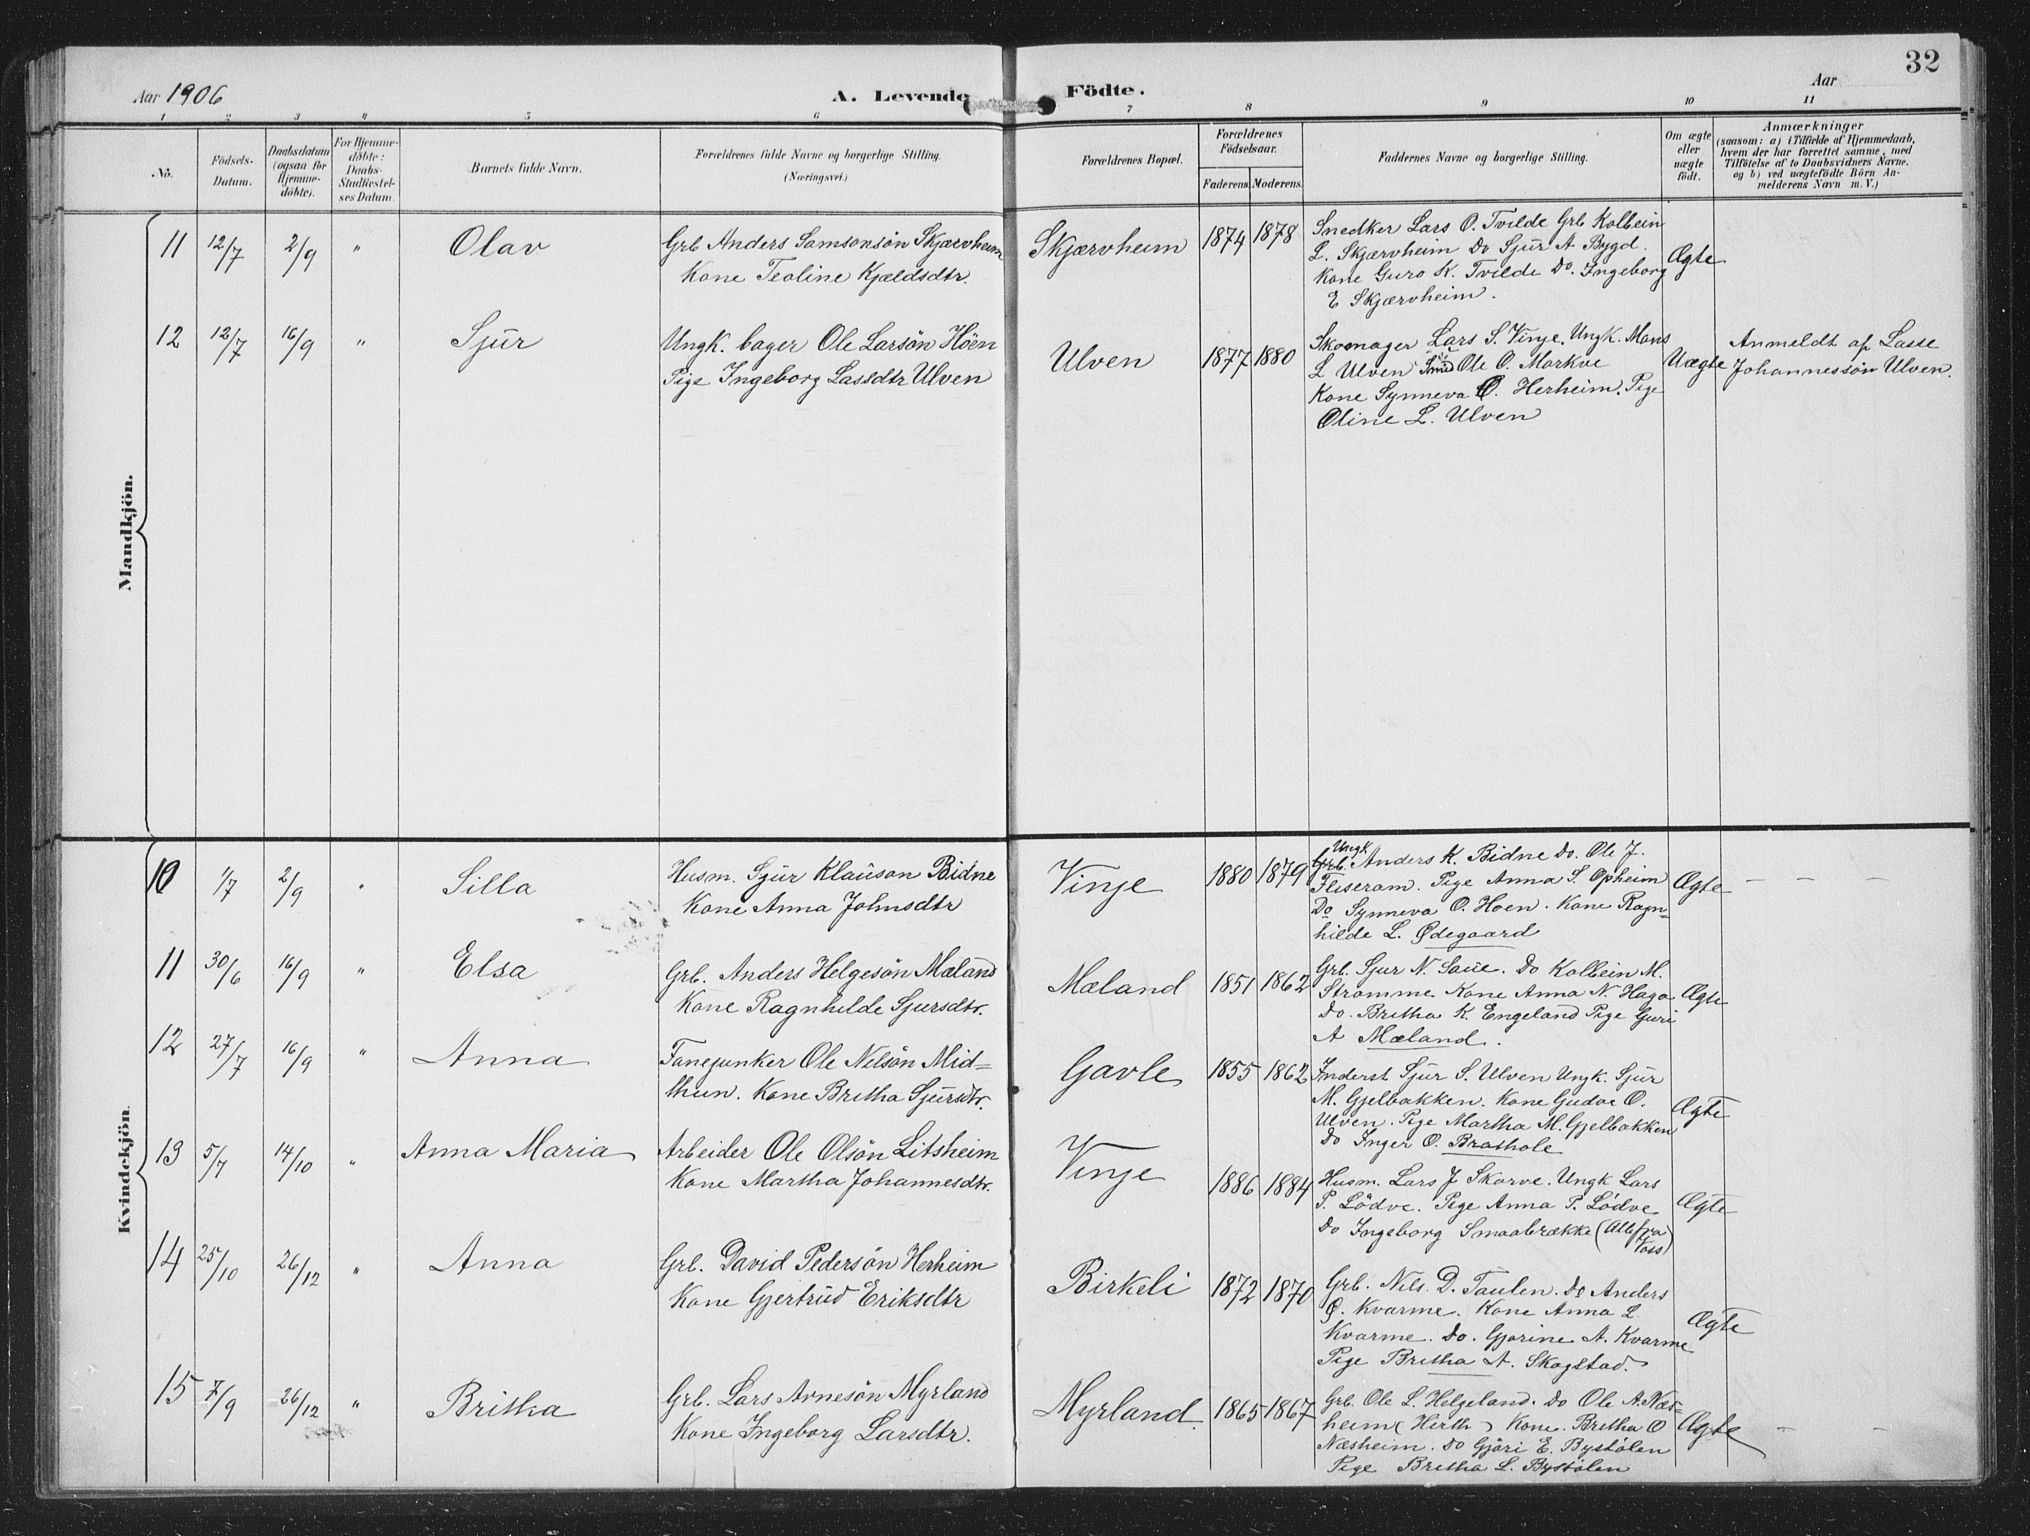 32
Aar 1906
A. Levende Födte.
Aar
1 2 3 " 5 6 7 8 9 10 11
No.
Födsels-
Datum.
Daabsdatum
(ogsaa for
Hjemme-
döbte).
For Hjemme-
döbte:
Daabs-
Stadfæstel-
ses Datum.
Barnets fulde Navn.
Forældrenes fulde Navne og borgerlige Stilling.
(Næringsvei.)
Forældrenes Bopæl.
Forældrenes
Födselsaar.
Faderens. Moderens.
Faddernes Navne og borgerlige Stilling.
Om ægte
eller
uægte
födt.
Anmærkninger
(saasom: a) i Tilfælde af Hjemmedaab,
hvem der har forrettet samme, med
Tilföielse af to Daabsvidners Navne.
og b) ved uægtefödte Börn An-
melderens Navn m. V.)
Mandkjön.
11 12/7 2/9 " Olav
Grb Anders Samsonsön Skjærvheim
Kone Teoline Kjældsdtr.
Skjærvheim 1874 1878
Snedker Lars O. Tvilde Grb Kolbein
L. Skjærvheim Do Sjur A Bygd.
Kone Guro K. Tvilde Do. Ingeborg
E Skjærvheim.
Ægte
12 12/7 16/9 " Sjur
Ungk. bager Ole Larsön Höen
Pige Ingeborg Lassdtr Ulven
Ulven 1877 1880
Skomager Lars S. Vinje. Ungk. Mons
L Ulven Smed Ole O. Markve
Kone Synneva O. Herheim. Pige
Oline L. Ulven
Uægte
Anmeldt af Lasse
Johannessön Ulven.
Kvindekjön.
10 1/7 2/9 " Silla
Husm. Sjur Klauson Bidne
Kone Anna Johnsdtr
Vinje 1880 1879
Ungk
Grb. Anders K. Bidne Do. Ole J.
Fliseram. Pige Anna S. Opheim
Do Synneva O. Hoen. Kone Ragn-
hilde L. Ødegaard
Ægte — — —
11 30/6 16/9 " Elsa
Grb. Anders Helgesön Mæland
Kone Ragnhilde Sjursdtr.
Mæland 1851 1862
Grb. Sjur N. Saue. Do Kolbein M.
Stromme Kone Anna N. Haga
Do. Britha K. Engeland Pige Guri
A Mæland.
Ægte
12 27/7 16/9 " Anna
Fanejunker Ole Nelsön Mid=
thun. Kone Britha Sjursdtr.
Gavle 1855 1862
Inderst Sjur S. Ulven Ungk. Sjur
M. Gjelbakken. Kone Gudve O.
Ulven. Pige Martha M. Gjelbakken
Do Inger O. Brathole
Ægte
13 5/7 14/10 " Anna Maria
Arbeider Ole Olsön Litsheim
Kone Martha Johannesdtr.
Vinje 1886 1884
Husm. Lars J Skorve. Ungk Lars
P. Lödve. Pige Anna P. Lödve
Do Ingeborg Smaabrække (Alle fra
Voss)
Ægte
14 25/10 26/12 " Anna
Grb. David Pedersön Herheim
Kone Gjertrud Eriksdtr
Birkeli 1872 1870
Grb. Nils D. Taulen. Do Anders
O. Kvarme. Kone Anna L
Kvarme. Do. Gjorine A. Kvarme
Pige Britha A. Skogstad.
Ægte
15 7/9 26/12 " Britha
Grb. Lars Arnesön Myrland
Kone Ingeborg Larsdtr.
Myrland 1865 1867
Grb. Ole L. Helgeland. Do Ole A. Næs-
heim (Hirth) Kone. Britha O
Næsheim. Do Gjöri E. Bystölen
Pige Britha L. Bystölen
Ægte — —